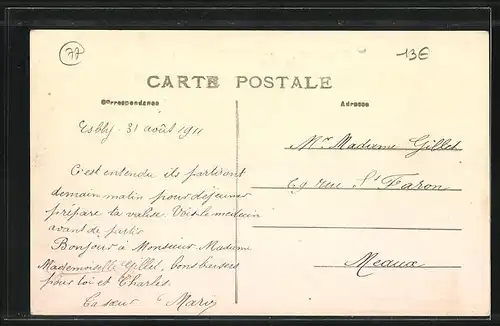 77
13€
CARTE POSTALE
Correspondance
Adresse
Esbly - 31 août 1911
C'est entendu ils partiront
demain matin pour déjeuner
prépare ta valise. Vois le medecin
avant de partir
Bonjour à Monsieur Madame
Mademoiselle Gillet, bons baisers
pour toi et Charles.
Ta sœur Marie
Madame Gillet
69 rue St Faron
Meaux